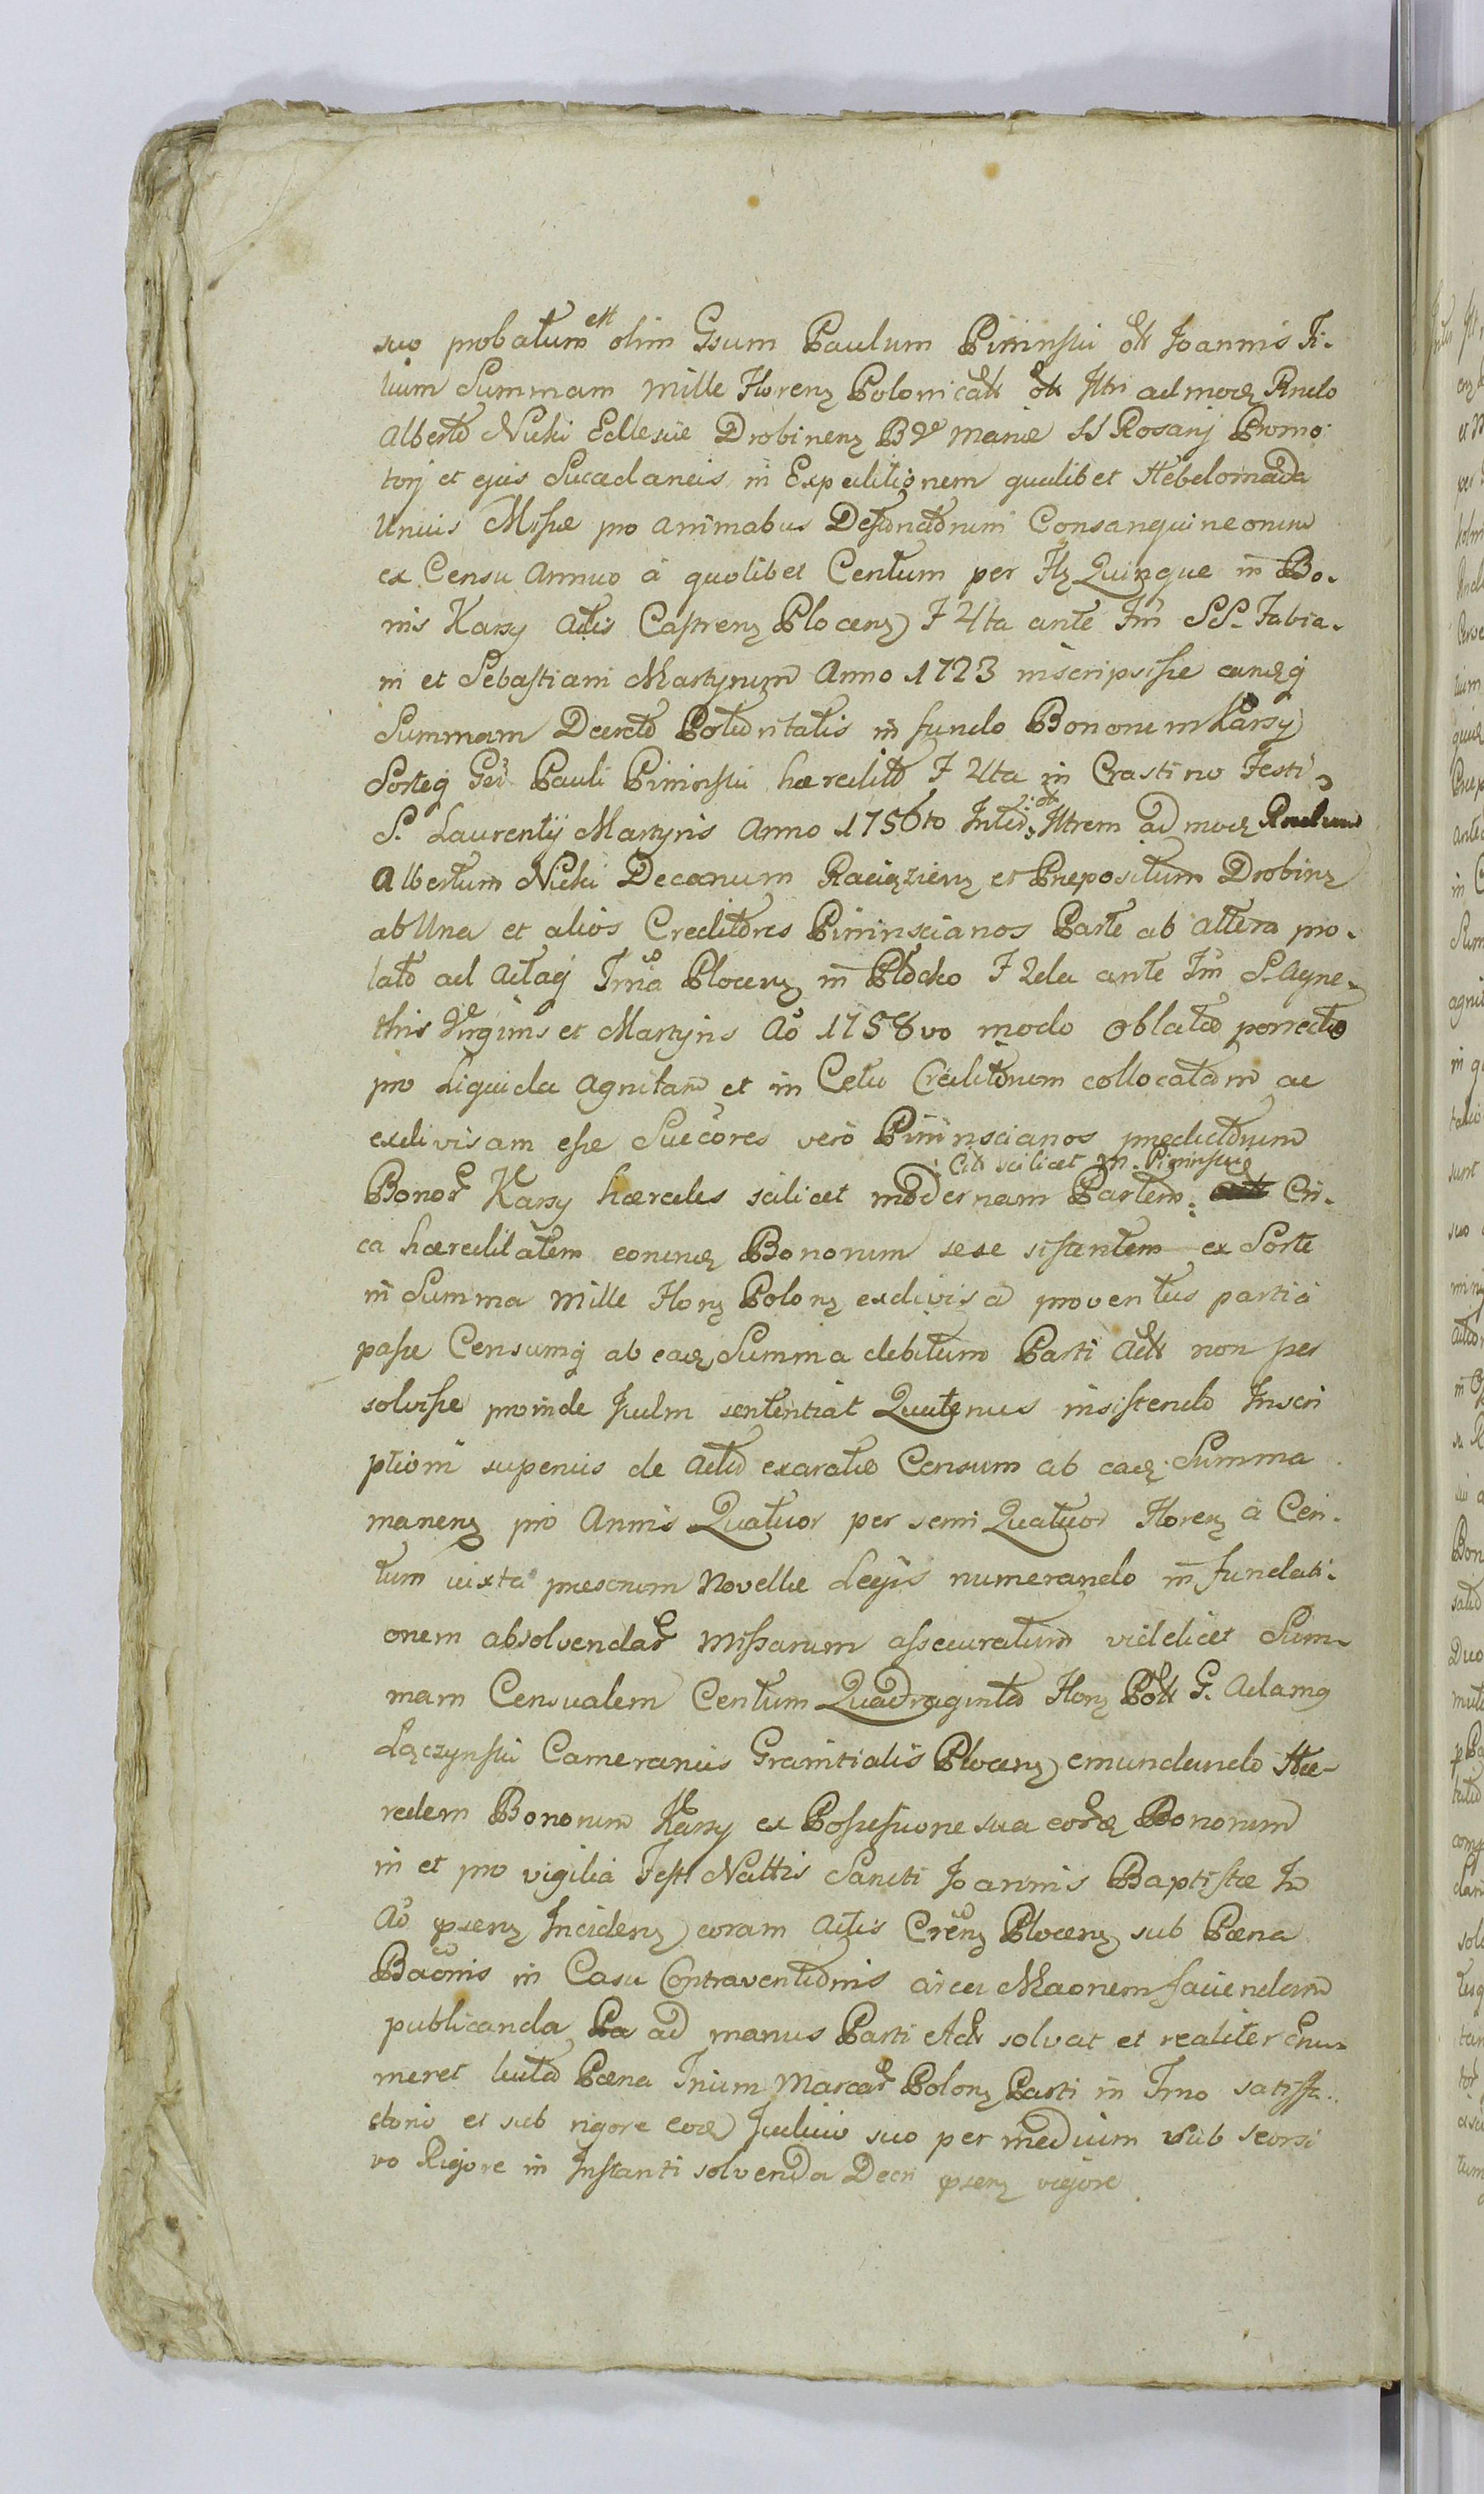 suo probatum est olim Gsum Paulum Pininski olt Joannis Fi-
lium Summam Mille Floren Polonicalt olt Illri admod Rndo
Alberto Nicki Ecclesiæ Drobinen B V Mariæ SS Rosarij Promo-
torj et ejus Succedaneis in Expeditionem qualibet Hebdomada
Unius Missæ pro animabus Defunctorum Consanquineorum
ex Censu Annuo à quolibet Centum per Fl Quinque in Bo-
nis Karsy Actis Castren Plocen F 4ta ante Fm SS. Fabia-
ni et Sebastiani Martyrum Anno 1723 inscripsisse eandq
Summam Decreto Potioritatis in fundo Bonorum Karsy
Sorteq Gsi Pauli Pininski hæredit F 4ta in Crastino Festi
S. Laurentij Martyris Anno 1756to Inter Illrem admod Rndum
Albertum Nicki Decanum Raciązien et Præpositum Drobin
ab Una et alios Creditores Pininscianos Parte ab altera pro-
lato ad Actaq Trna Plocen in Plocko F 2da ante Fm S. Agne-
this Virginis et Martyris Ao 1758vo modo oblatæ porrecto
pro Liquida Agnitam et in Cetu Creditorum collocatam ac
exdivisam esse Succores verò Pininscianos prædictorum
: Citt scilicet M. Pininski
Bonor Karsy hæredes scilicet modernam Partem: Cir-
ca hæreditatem eorund Bonorum sese sistentem ex Sorte
in Summa Mille Flor Polon exdivisa proventus partici
passe Censumq ab ead Summa debitum Parti Actt non per
solvisse proinde Judm sententiat Quatenus insistendo Inscri
ptiom superius de Actu exaratæ Censum ab ead Summa
manen pro Annis Quatuor per semi Quatuor Floren à Cen-
tum iuxta præscrium Novellæ Legis numerando in fundati-
onem absolvendar Missarum assecuratum videlicet Sum-
mam Censualem Centum Quadraginta Flor Poll G. Adamq
Łączynski Camerarius Granitialis Plocen emundando Hæ-
redem Bonorum Karsy ex Possessione sua eord Bonorum
in et pro vigilia Festi Nattis Sancti Joannis Baptistæ In
Ao psen Inciden coram Actis Cren Plocen sub Pæna
Baonis in Casu Contraventionis circa Maonem faciendam
publicanda Pa ad manus Parti Actt solvat et realiter Enu-
meret luita Pæna Trium Marcar Polon Parti in Trno satisfa-
ctorio et sub rigore eod Judicio suo per medium sub seorsi
vo Rigore in Instanti solvenda Decri psen vigore